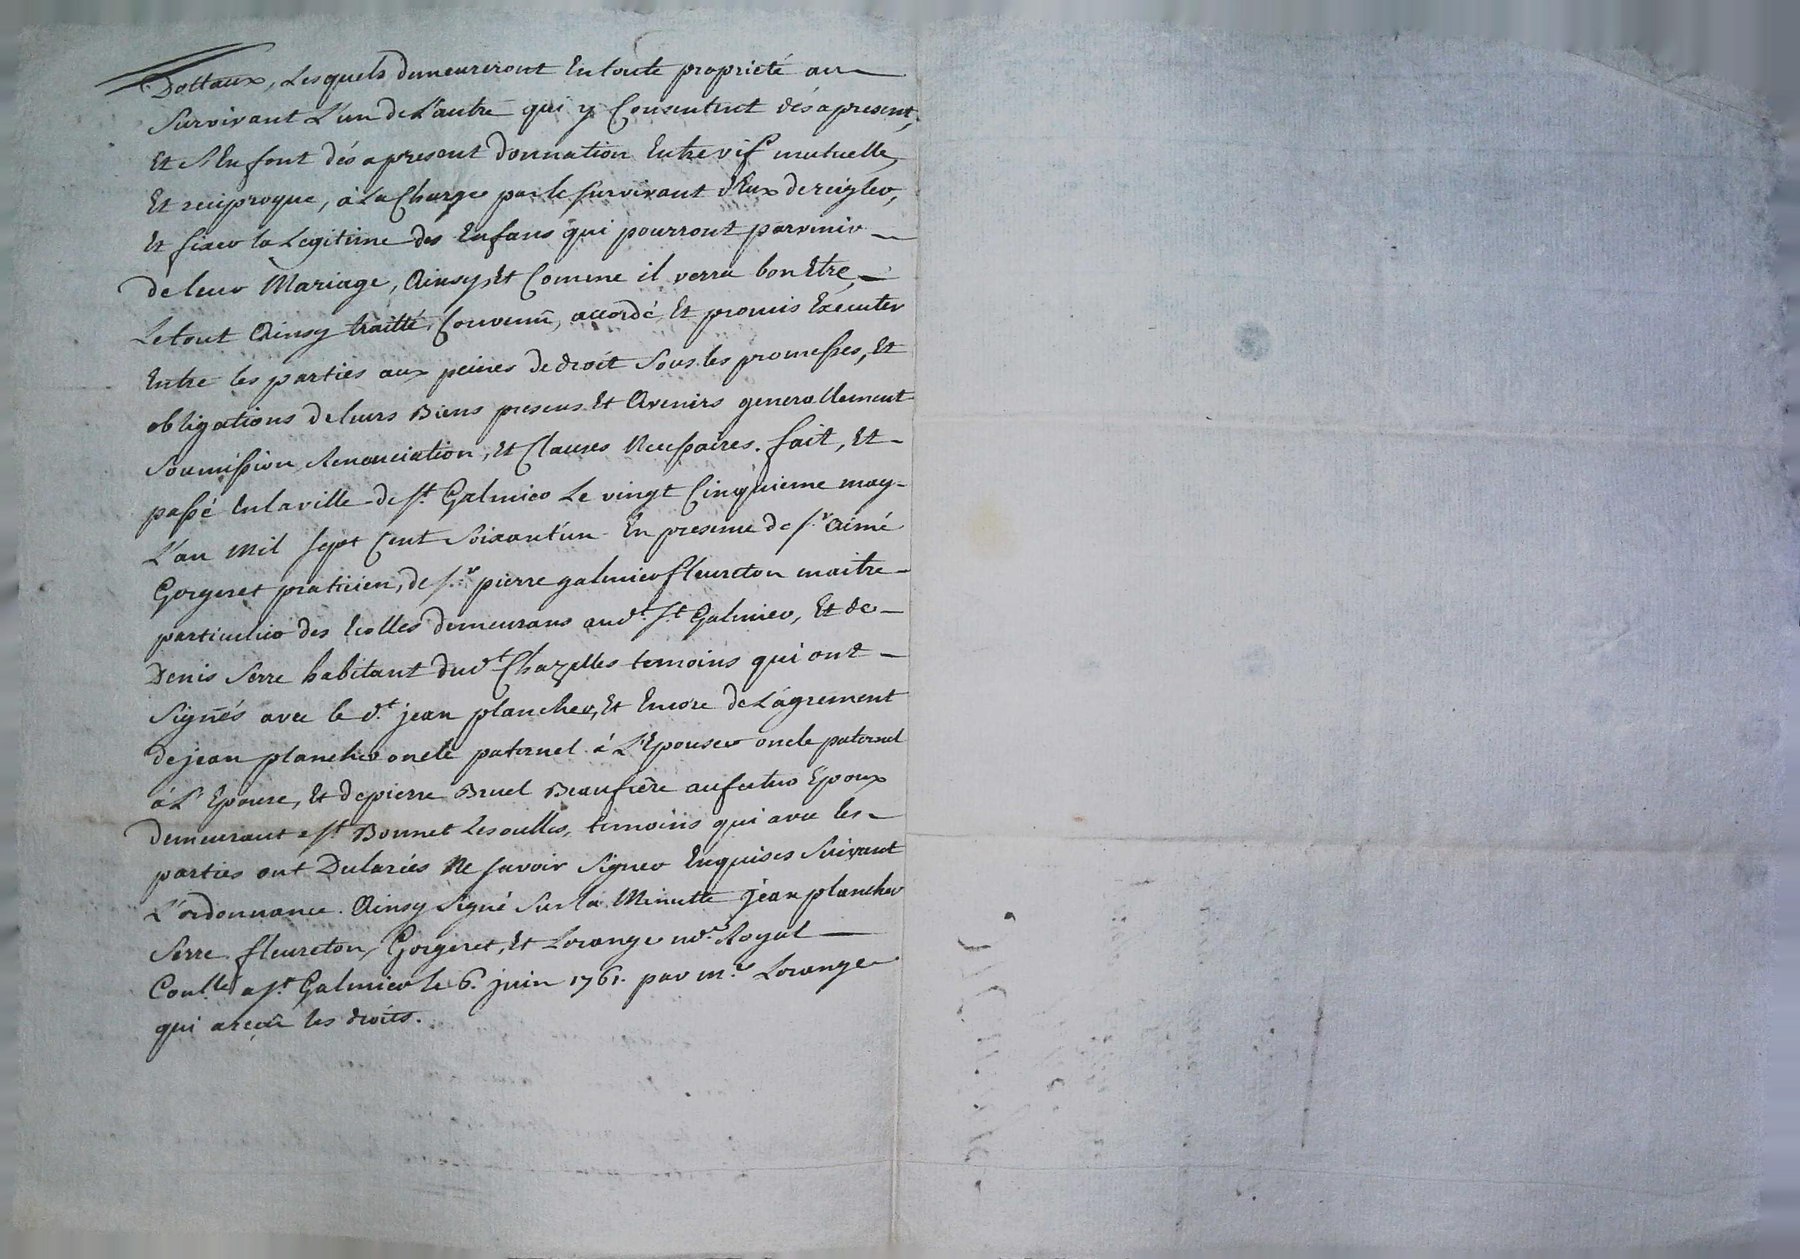 Dottaux, Lesquels demeureront En toute proprieté au
Survivant L'un de L'autre qui y Consentent dés apresent,
Et S'En font dés apresent donnation Entrevifs mutuelle,
Et reciproque, à La Charge par le Survivant d'Eux de reigler,
Et fixer la Legitime des Enfans qui pourront parvenir
de leur Mariage, Ainsy Et Comme il verra bon Etre,
Le tout Ainsy traitté, Convenu, accordé, Et promis Executer
Entre les parties aux peines de droit Sous les promesses, Et
obligations de leurs Biens presens Et Avenirs generallement
Soumission, Renonciation, Et Clauses Necessaires. fait, Et
passé En la ville de St. Galmier Le vingt Cinquieme may
L'an Mil Sept Cent Soixant'un En presence de Sr. Aimé
Gorgeret praticien, de Sr. pierre galmier fleureton maitre
particulier des Ecolles demeurans aud.t St. Galmier, Et de
Denis Serre habitant dud.t Chazelles temoins qui ont
Signés avec le d.t jean plancher, Et Encore de L'agrement
de jean plancher oncle paternel à L'Epouser oncle paternel
à L'Epouse, Et de pierre Bruel Beaufrère au futur Epoux
demeurant a St. Bonnet Les oulles, temoins qui avec les
parties ont Declariés Ne Savoir Signer Enquises Suivant
L'ordonnance. Ainsy Signé Sur la Minutte jean plancher
Serre fleureton, Gorgeret, Et Lorange no.re Royal
Con.llé a St. Galmier le 6.e juin 1761. par m.r Lorange
qui a reçû les droits.